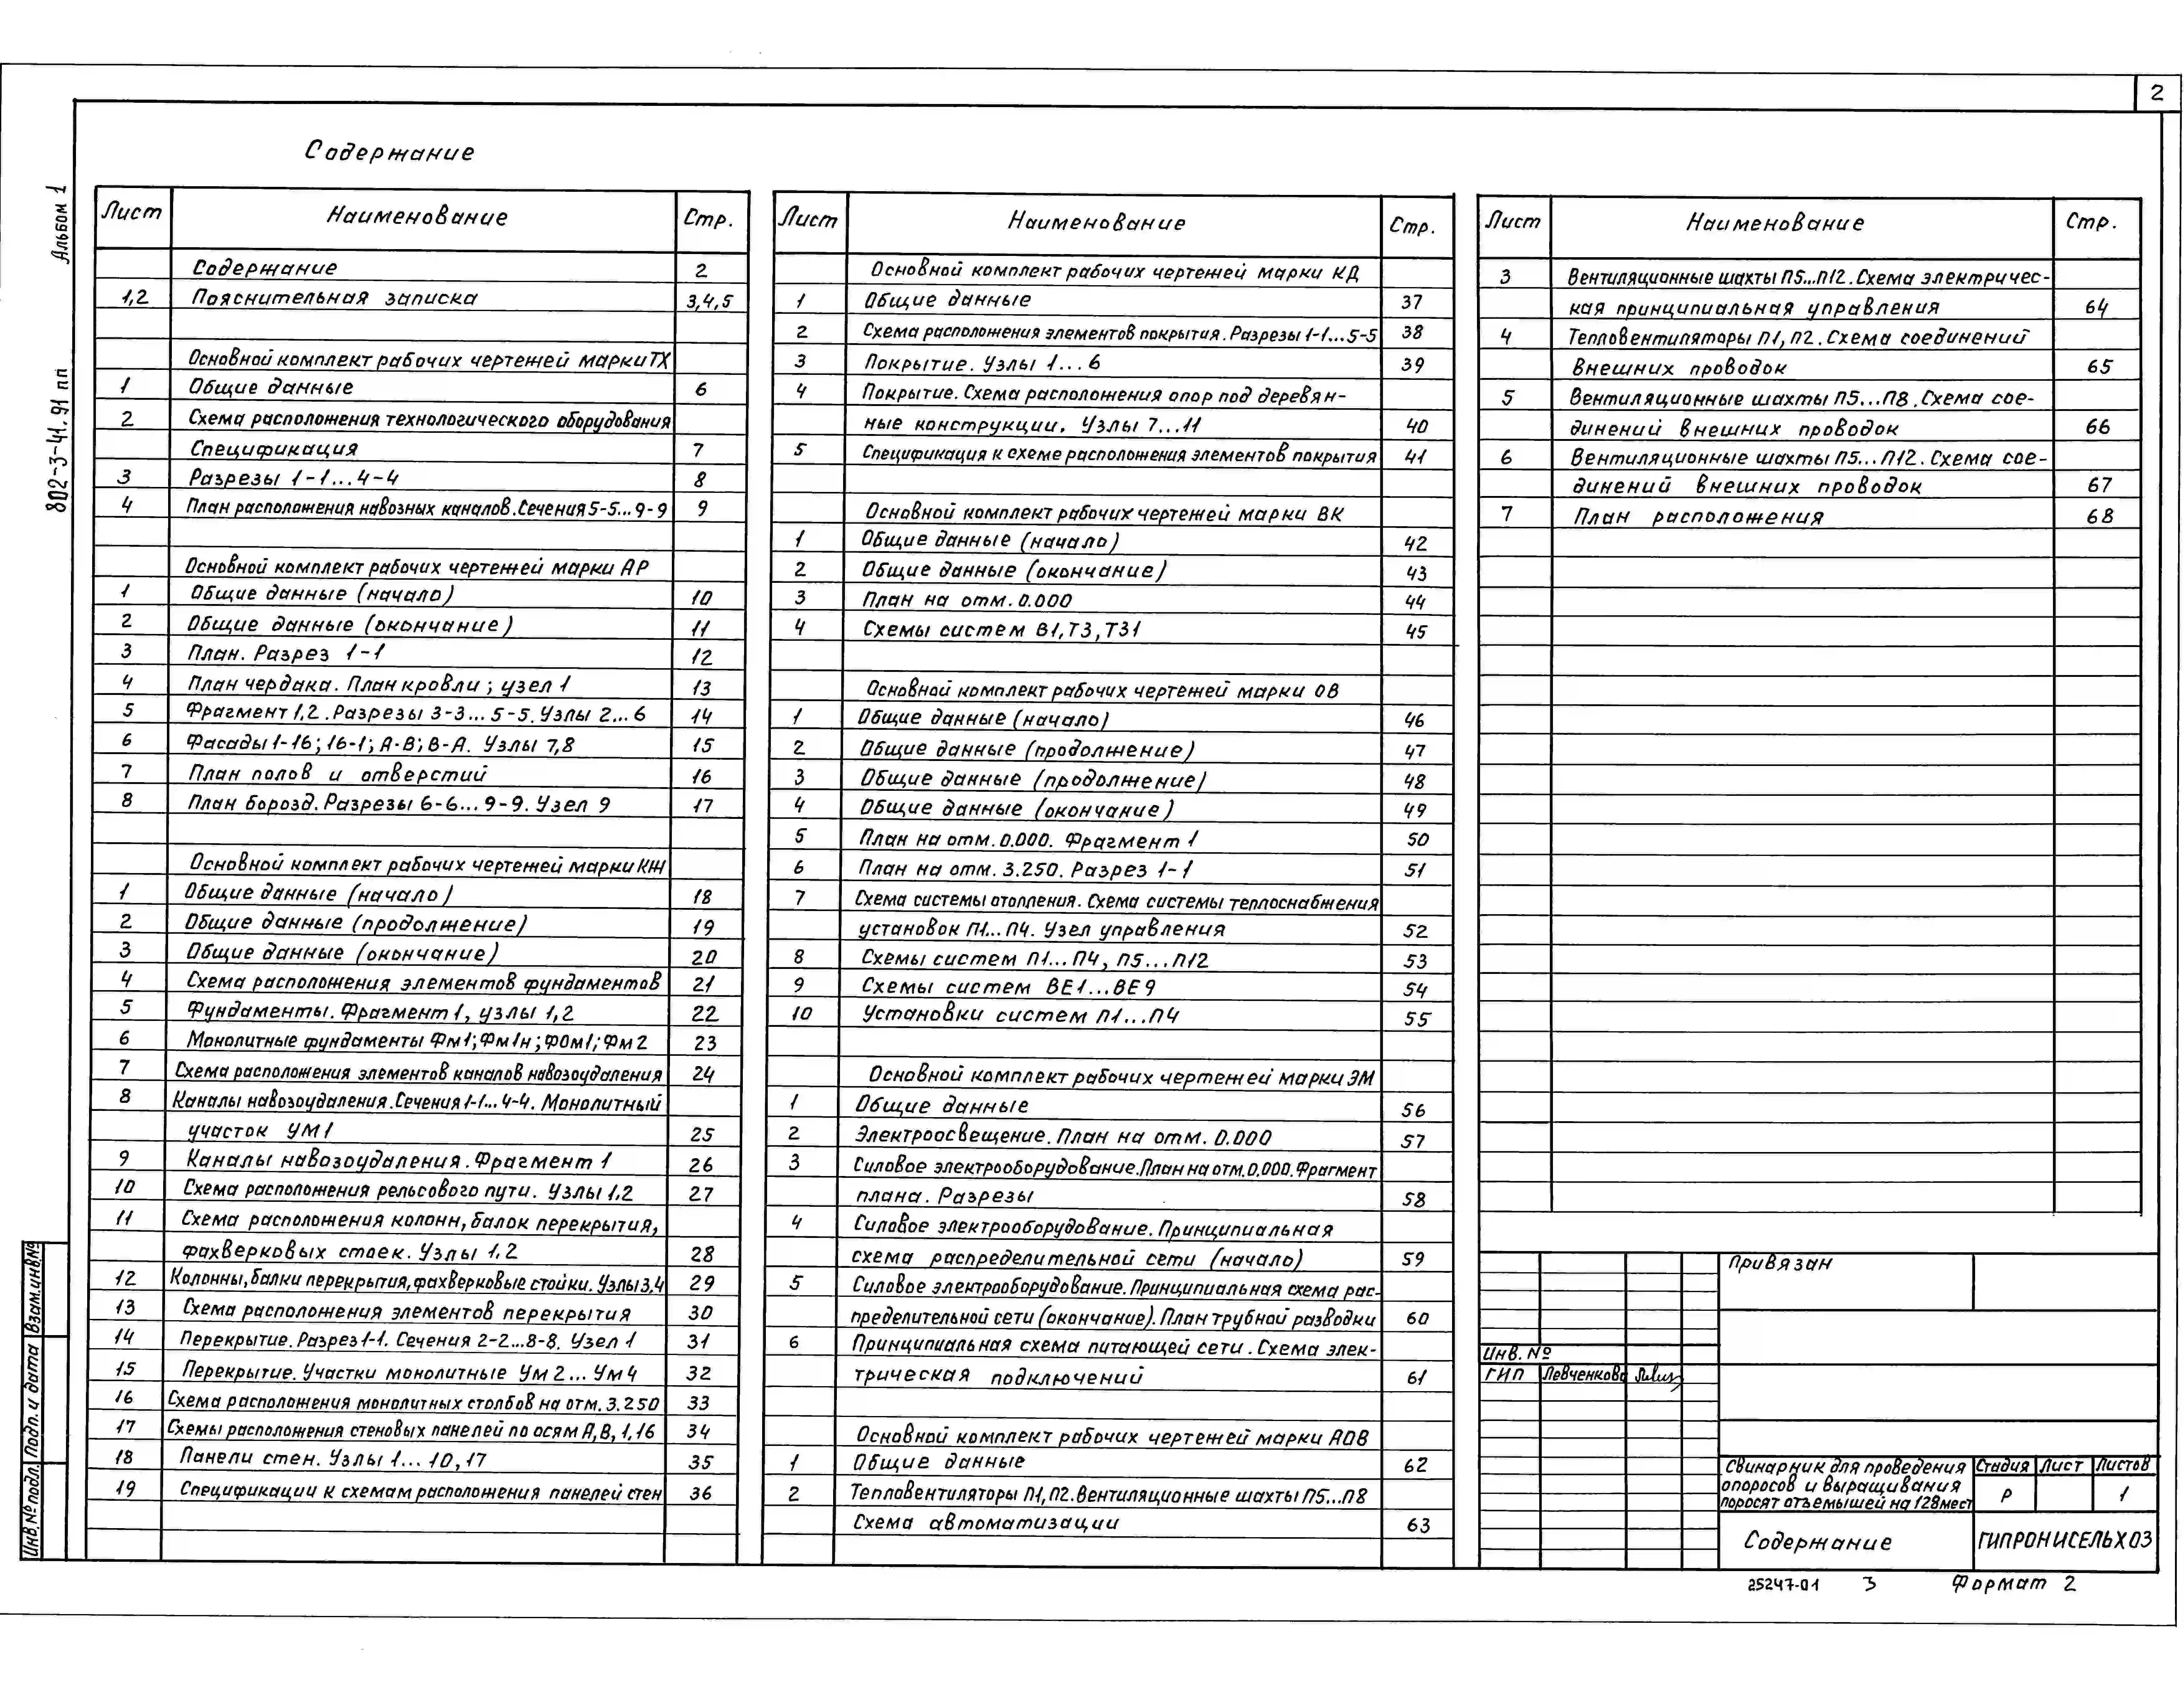 2
Содержание
Альбом 1
802-3-41.91 пп
Лист Наименование Стр.
Содержание 2
1,2 Пояснительная записка 3,4,5
Основной комплект рабочих чертежей марки ТХ
1 Общие данные 6
2 Схема расположения технологического оборудования
Спецификация 7
3 Разрезы 1-1...4-4 8
4 План расположения навозных каналов.Сечения 5-5...9-9 9
Основной комплект рабочих чертежей марки АР
1 Общие данные (начало) 10
2 Общие данные (окончание) 11
3 План. Разрез 1-1 12
4 План чердака. План кровли; узел 1 13
5 Фрагмент 1,2. Разрезы 3-3...5-5. Узлы 2...6 14
6 Фасады 1-16; 16-1; А-В; В-А. Узлы 7,8 15
7 План полов и отверстий 16
8 План борозд. Разрезы 6-6...9-9. Узел 9 17
Основной комплект рабочих чертежей марки КЖ
1 Общие данные (начало) 18
2 Общие данные (продолжение) 19
3 Общие данные (окончание) 20
4 Схема расположения элементов фундаментов 21
5 Фундаменты. Фрагмент 1, узлы 1,2 22
6 Монолитные фундаменты Фм1; Фм1н; ФОм1; Фм2 23
7 Схема расположения элементов каналов навозоудаления 24
8 Каналы навозоудаления. Сечения 1-1...4-4. Монолитный
участок УМ1 25
9 Каналы навозоудаления. Фрагмент 1 26
10 Схема расположения рельсового пути. Узлы 1,2 27
11 Схема расположения колонн, балок перекрытия,
фахверковых стоек. Узлы 1,2 28
12 Колонны, балки перекрытия, фахверковые стойки. Узлы 3,4 29
13 Схема расположения элементов перекрытия 30
14 Перекрытие. Разрез 1-1. Сечения 2-2...8-8. Узел 1 31
15 Перекрытие. Участки монолитные Ум2...Ум4 32
16 Схема расположения монолитных столбов на отм. 3.250 33
17 Схемы расположения стеновых панелей по осям А,В,1,16 34
18 Панели стен. Узлы 1...10,17 35
19 Спецификации к схемам расположения панелей стен 36
Лист Наименование Стр.
Основной комплект рабочих чертежей марки КД
1 Общие данные 37
2 Схема расположения элементов покрытия. Разрезы 1-1...5-5 38
3 Покрытие. Узлы 1...6 39
4 Покрытие. Схема расположения опор под деревян-
ные конструкции. Узлы 7...11 40
5 Спецификация к схеме расположения элементов покрытия 41
Основной комплект рабочих чертежей марки ВК
1 Общие данные (начало) 42
2 Общие данные (окончание) 43
3 План на отм. 0.000 44
4 Схемы систем В1, Т3, Т31 45
Основной комплект рабочих чертежей марки ОВ
1 Общие данные (начало) 46
2 Общие данные (продолжение) 47
3 Общие данные (продолжение) 48
4 Общие данные (окончание) 49
5 План на отм. 0.000. Фрагмент 1 50
6 План на отм. 3.250. Разрез 1-1 51
7 Схема системы отопления. Схема системы теплоснабжения
установок П1...П4. Узел управления 52
8 Схемы систем П1...П4, П5...П12 53
9 Схемы систем ВЕ1...ВЕ9 54
10 Установки систем П1...П4 55
Основной комплект рабочих чертежей марки ЭМ
1 Общие данные 56
2 Электроосвещение. План на отм. 0.000 57
3 Силовое электрооборудование. План на отм. 0.000. Фрагмент
плана. Разрезы 58
4 Силовое электрооборудование. Принципиальная
схема распределительной сети (начало) 59
5 Силовое электрооборудование. Принципиальная схема рас-
пределительной сети (окончание). План трубной разводки 60
6 Принципиальная схема питающей сети. Схема элек-
трическая подключений 61
Основной комплект рабочих чертежей марки АОВ
1 Общие данные 62
2 Тепловентиляторы П1, П2. Вентиляционные шахты П5...П8
Схема автоматизации 63
Лист Наименование Стр.
3 Вентиляционные шахты П5...П12. Схема электричес-
кая принципиальная управления 64
4 Тепловентиляторы П1, П2. Схема соединений
внешних проводок 65
5 Вентиляционные шахты П5...П8. Схема сое-
динений внешних проводок 66
6 Вентиляционные шахты П5...П12. Схема сое-
динений внешних проводок 67
7 План расположения 68
Привязан
Инв. №
ГИП Левченкова
Свинарник для проведения
опоросов и выращивания
поросят отъемышей на 128 мест
Стадия Лист Листов
Р 1
Содержание
ГИПРОНИСЕЛЬХОЗ
25247-01 3 Формат 2
Взам.инв.№
Подп. и дата
Инв.№ подл.